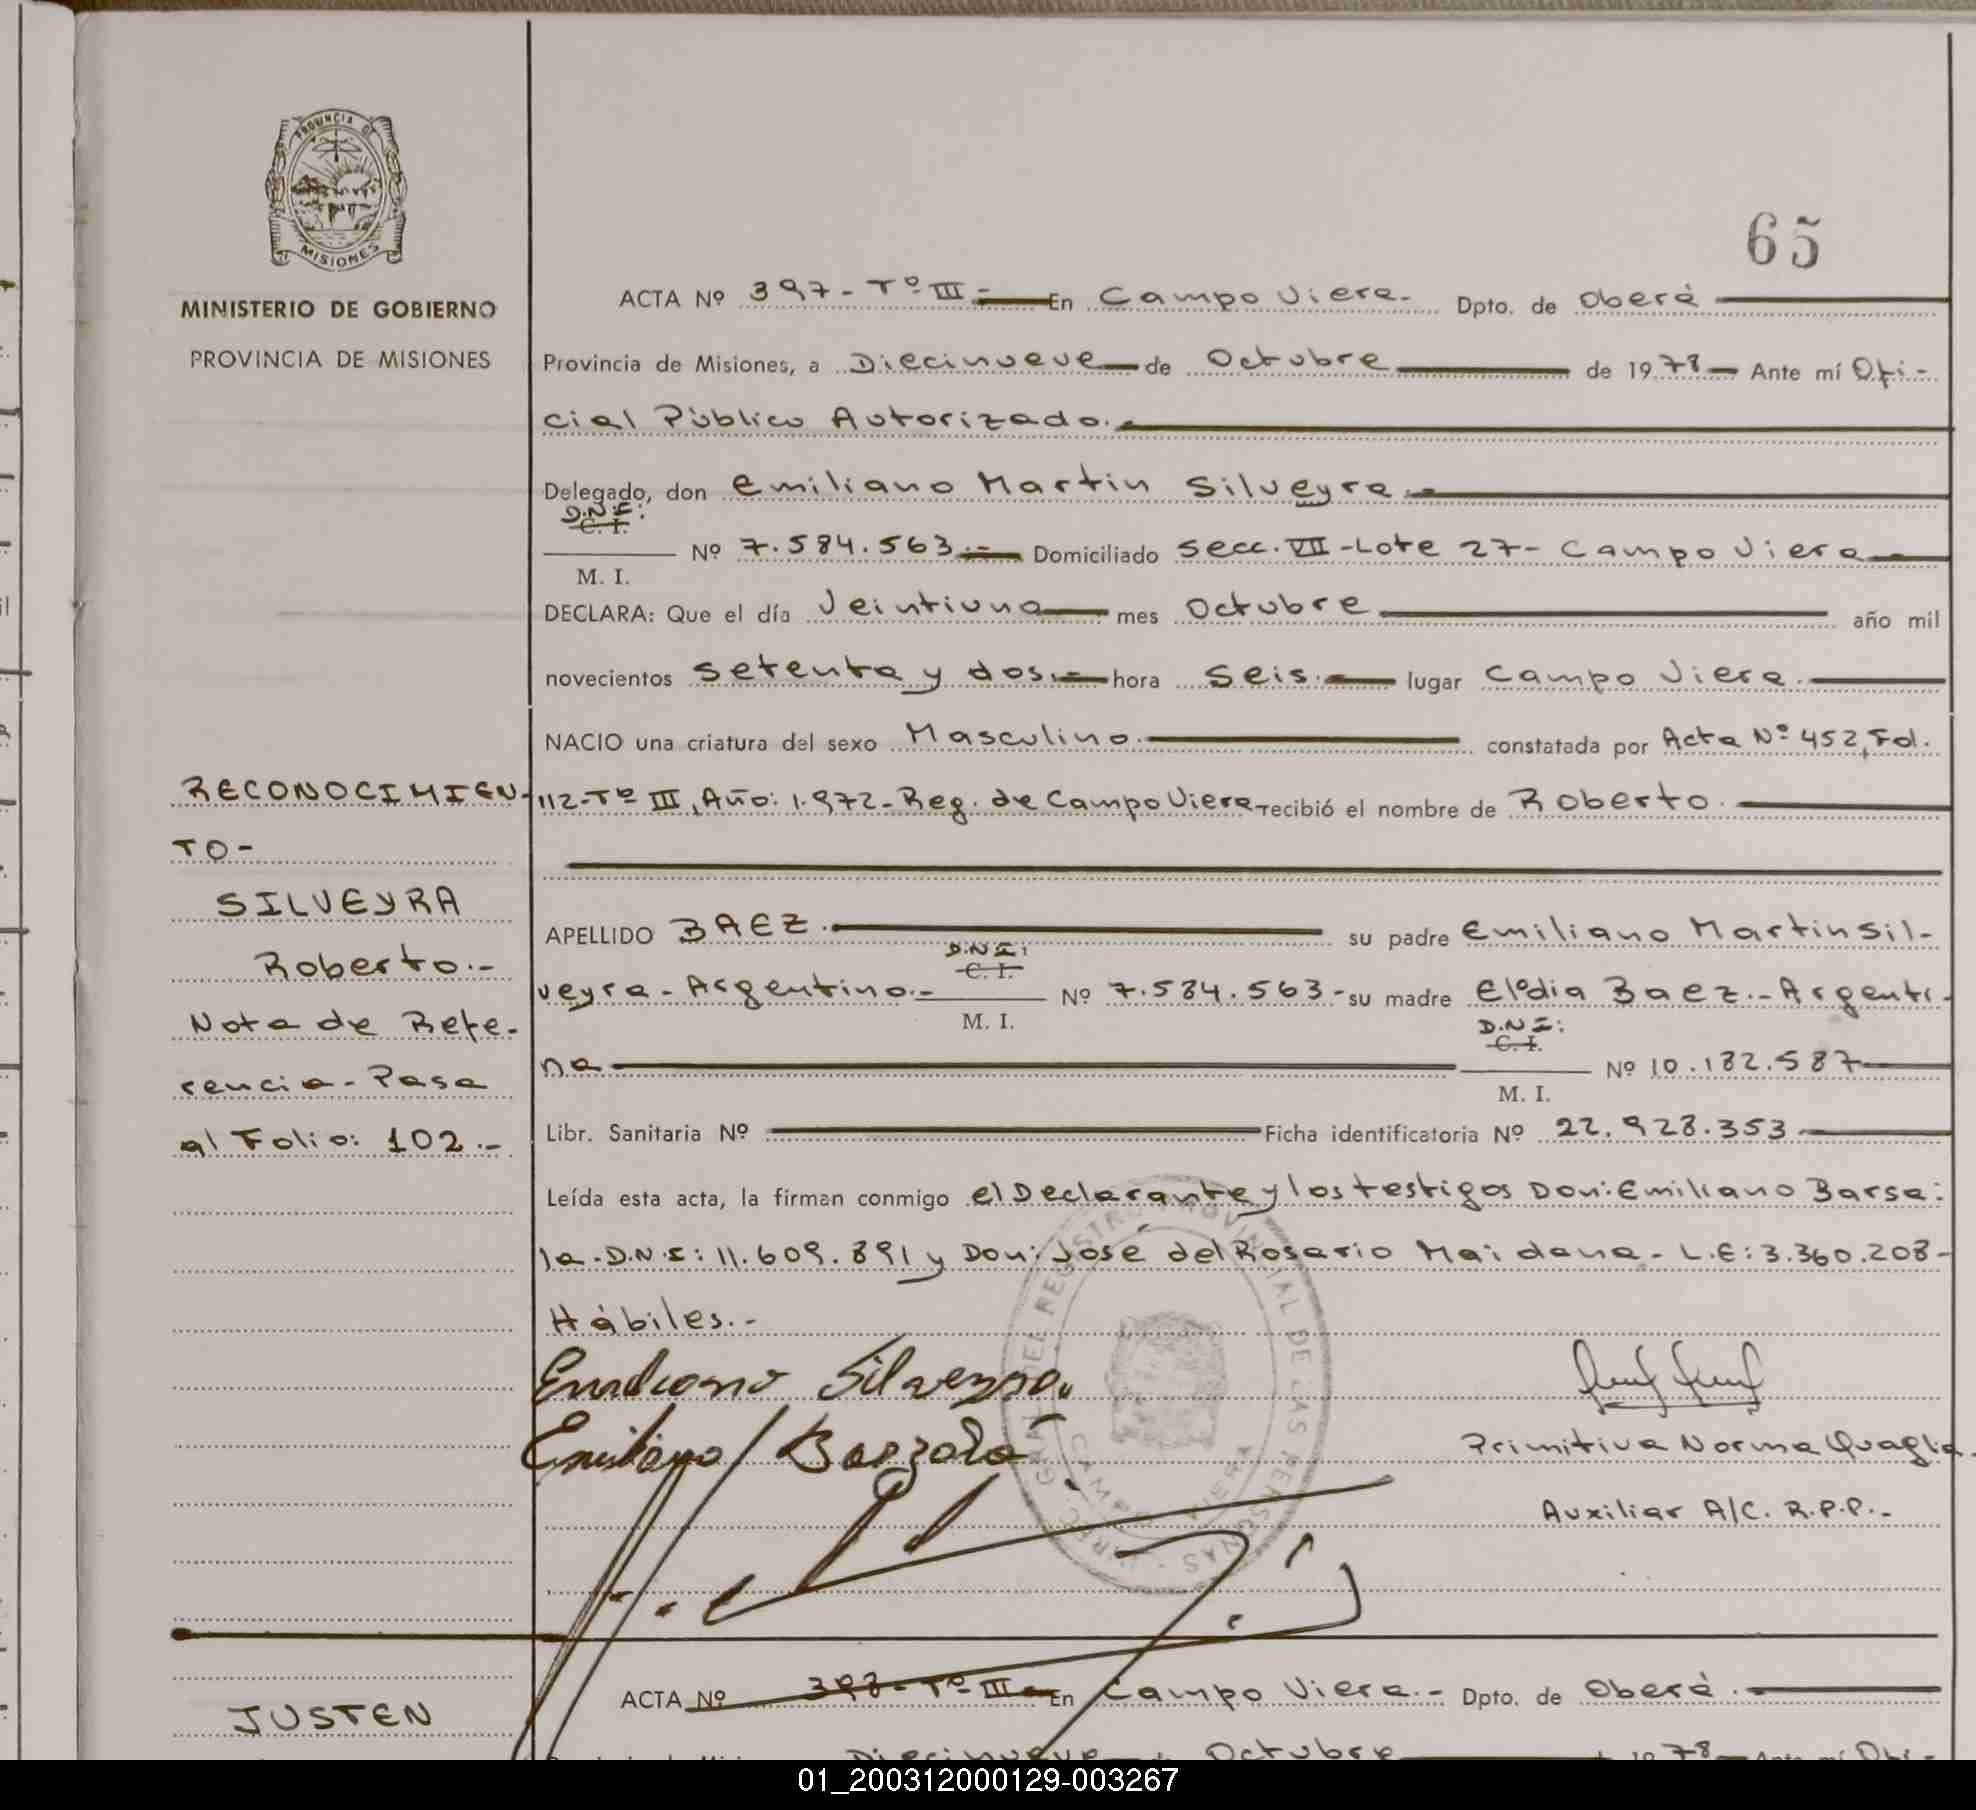 PROVINCIA DE
MISIONES
MINISTERIO DE GOBIERNO
PROVINCIA DE MISIONES
65
ACTA Nº 397-Tº III- En Campo Viera.- Dpto. de Oberá
Provincia de Misiones, a Diecinueve de Octubre de 1978 Ante mí Ofi-
cial Público Autorizado.-
Delegado, don Emiliano Martin Silveyra.-
D.N.I:
C. I.
Nº 7.584.563.- Domiciliado Secc. VII-Lote 27- Campo Viera
M. I.
DECLARA: Que el día Veintiuno mes Octubre año mil
novecientos setenta y dos.- hora Seis.- lugar Campo Viera.
NACIO una criatura del sexo Masculino. constatada por Acta Nº 452, Fol.
112-Tº III, Año: 1.972- Reg. de Campo Viera recibió el nombre de Roberto.
APELLIDO BAEZ. su padre Emiliano Martin Sil-
D.N.I:
C. I.
veyra- Argentino.- Nº 7.584.563- su madre Elodia Baez.- Argenti-
M. I.
D.N.I:
C. I.
na Nº 10.182.587
M. I.
Libr. Sanitaria Nº Ficha identificatoria Nº 22.928.353
Leída esta acta, la firman conmigo el Declarante y los testigos Don: Emiliano Barsa:
la.D.N.I: 11.609.891 y Don: José del Rosario Maidana- L.E: 3.360.208-
Hábiles.-
RECONOCIMIEN-
TO-
SILVEYRA
Roberto.-
Nota de Refe-
rencia- Pasa
al Folio: 102.-
Emiliano Silveyra
Emiliano Barzala
Primitiva Norma Quaglia.
Auxiliar A/C. R.P.P.-
DIREC. GRAL. DEL REGISTRO PROVINCIAL DE LAS PERSONAS
CAMPO VIERA
JUSTEN
ACTA Nº 398-Tº III- En Campo Viera.- Dpto. de Oberá.
Diecinueve de Octubre 1978 Ante mí Ofi-
01_200312000129-003267